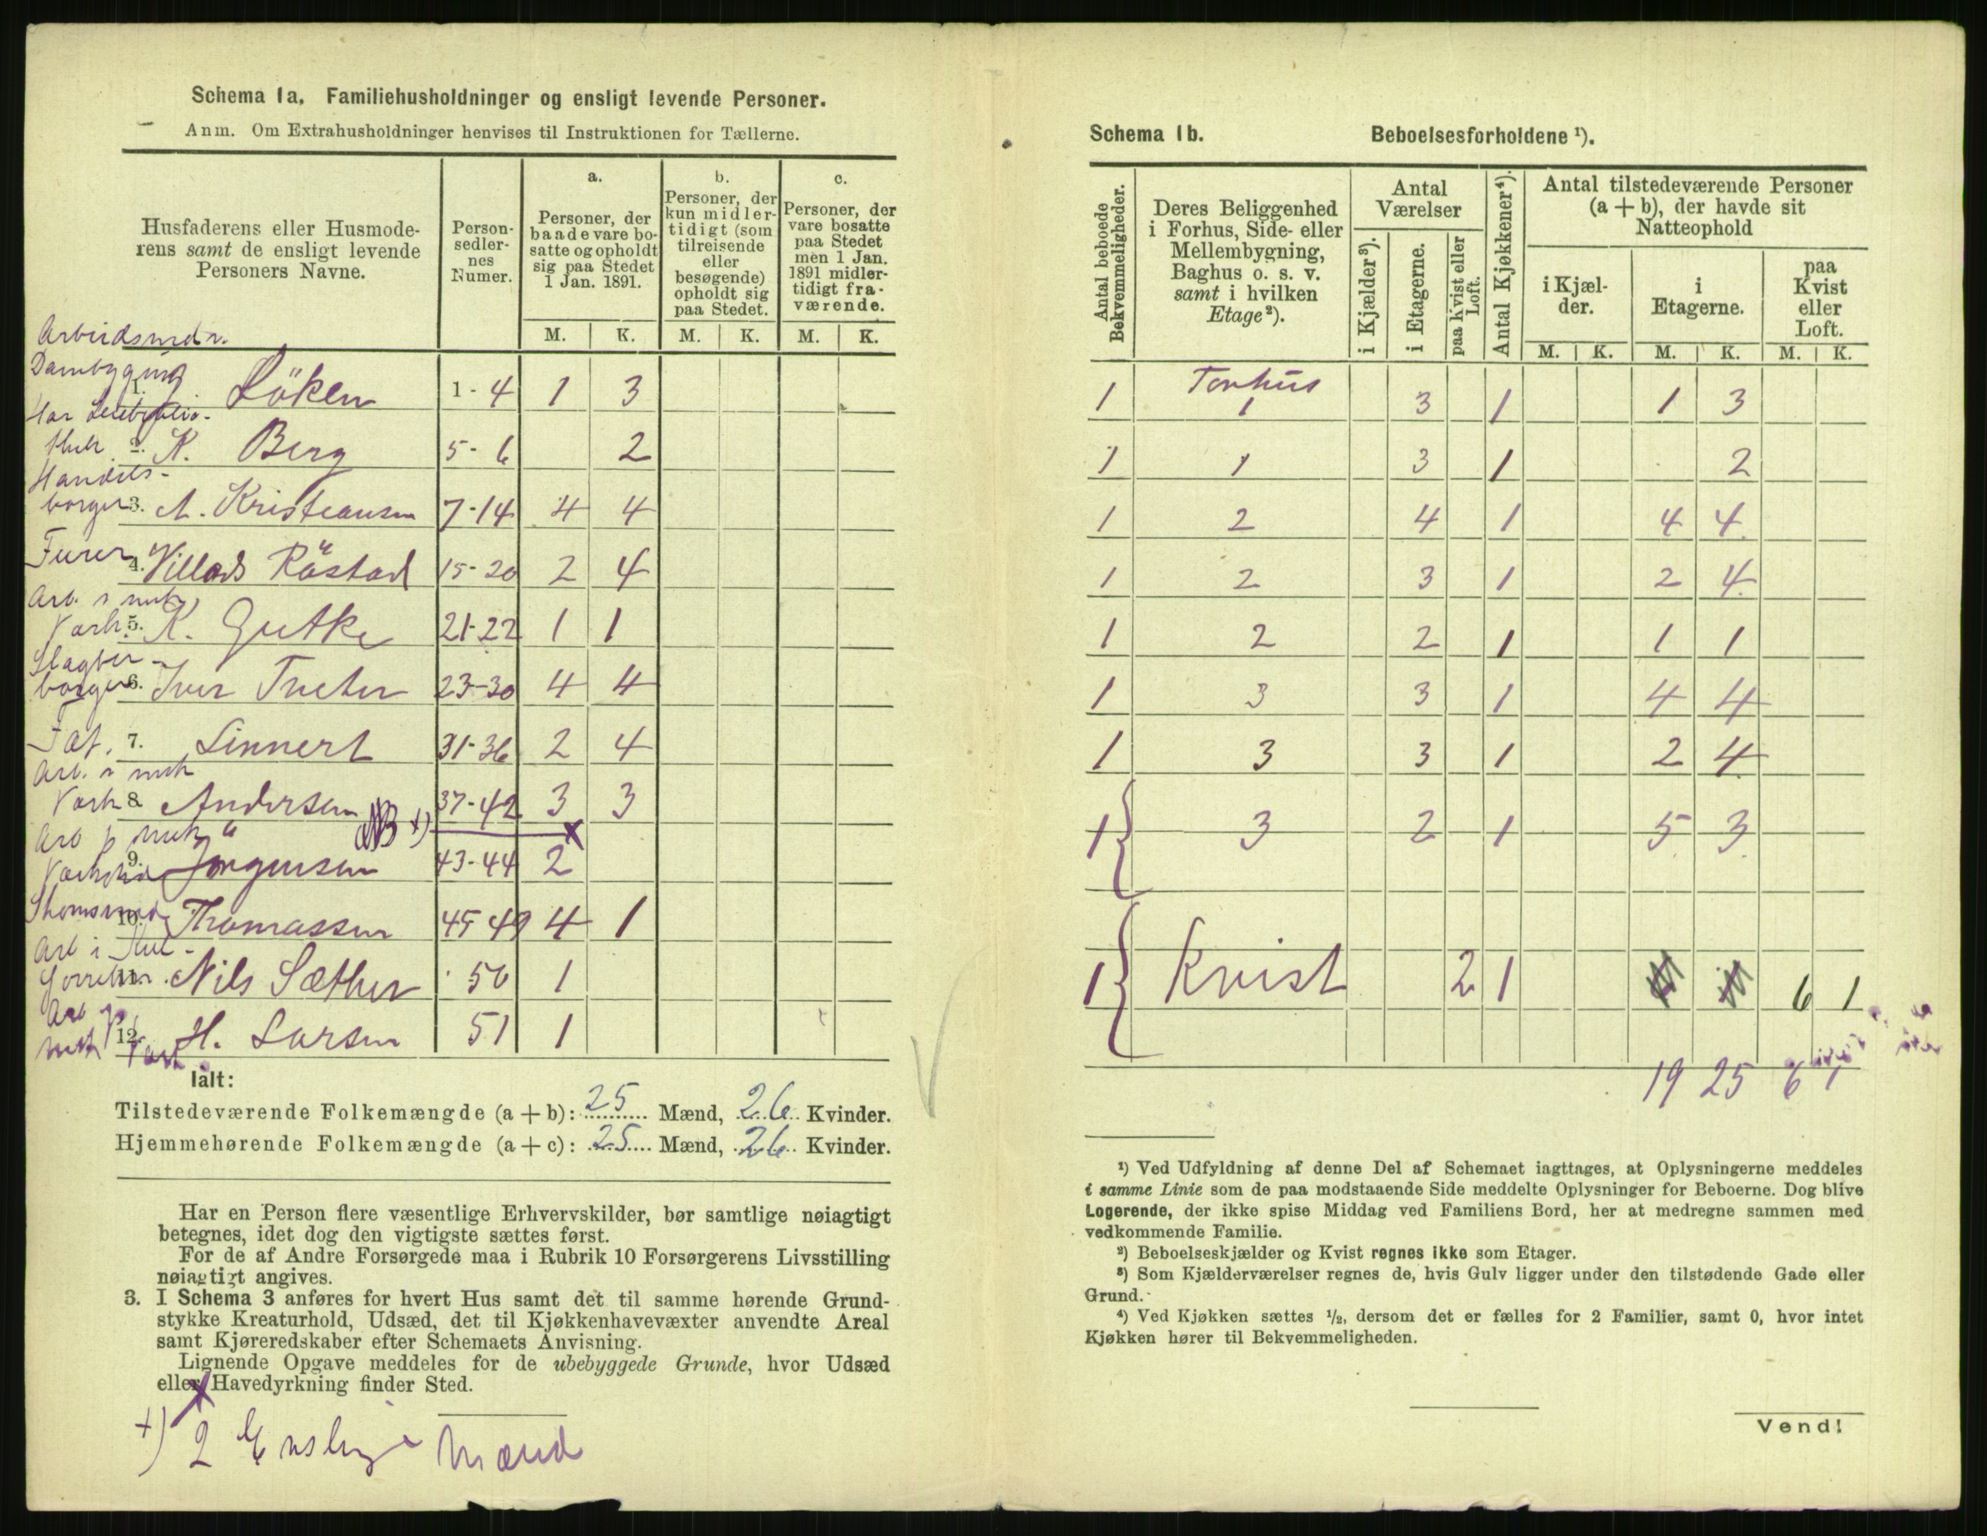 Schema 1a. Familiehusholdninger og ensligt levende Personer.
Anm. Om Extrahusholdninger henvises til Instruktionen for Tællerne.
Husfaderens eller Husmoderens samt de ensligt levende Personers Navne.
Person-sedler-nes Numer.
a.
Personer, der baade vare bosatte og opholdt sig paa Stedet 1 Jan. 1891.
b.
Personer, der kun midler-tidigt (som tilreisende eller besøgende) opholdt sig paa Stedet.
c.
Personer, der vare bosatte paa Stedet men 1 Jan. 1891 midler-tidigt fra-værende.
M. K. M. K. M. K.
Arbeidsmdn.
1. Löken 1-4 1 3
2. K. Berg 5-6 2
Handels-
borger 3. A. Kristiansen 7-14 4 4
Furer 4. Villads Röstad 15-20 2 4
Arb. i mek
Værk. 5. K. Gutke 21-22 1 1
Slagter-
borger 6. Iver Treter 23-30 4 4
7. Linnert 31-36 2 4
Arb. i mek
Værk 8. Andersen NB +) 37-42 3 3
Arb p mek
9. Jörgensen 43-44 2
10. Thomassen 45-49 4 1
Arb i
11. Nils Sæther 50 1
Arb p
mek Værk 12. H. Larsen 51 1
Ialt:
Tilstedeværende Folkemængde (a + b): 25 Mænd, 26 Kvinder.
Hjemmehørende Folkemængde (a + c): 25 Mænd, 26 Kvinder.
Har en Person flere væsentlige Erhvervskilder, bør samtlige nøiagtigt
betegnes, idet dog den vigtigste sættes først.
For de af Andre Forsørgede maa i Rubrik 10 Forsørgerens Livsstilling
nøiagtigt angives.
3. I Schema 3 anføres for hvert Hus samt det til samme hørende Grund-
stykke Kreaturhold, Udsæd, det til Kjøkkenhavevæxter anvendte Areal
samt Kjøreredskaber efter Schemaets Anvisning.
Lignende Opgave meddeles for de ubebyggede Grunde, hvor Udsæd
eller Havedyrkning finder Sted.
+) 2 Enslige Mænd
Schema 1b. Beboelsesforholdene ¹).
Antal beboede Bekvemmeligheder.
Deres Beliggenhed i Forhus, Side- eller Mellembygning, Baghus o. s. v. samt i hvilken Etage²).
Antal Værelser
i Kjælder³).
i Etagerne.
paa Kvist eller Loft.
Antal Kjøkkener⁴).
Antal tilstedeværende Personer (a + b), der havde sit Natteophold
i Kjæl-der.
i Etagerne.
paa Kvist eller Loft.
M. K. M. K. M. K.
1 Forhus 1 3 1 1 3
1 1 3 1 2
1 2 4 1 4 4
1 2 3 1 2 4
1 2 2 1 1 1
1 3 3 1 4 4
1 3 3 1 2 4
1 3 2 1 5 3
1 Kvist 2 1 6 1
19 25 6 1
¹) Ved Udfyldning af denne Del af Schemaet iagttages, at Oplysningerne meddeles
i samme Linie som de paa modstaaende Side meddelte Oplysninger for Beboerne. Dog blive
Logerende, der ikke spise Middag ved Familiens Bord, her at medregne sammen med
vedkommende Familie.
²) Beboelseskjælder og Kvist regnes ikke som Etager.
³) Som Kjælderværelser regnes de, hvis Gulv ligger under den tilstødende Gade eller
Grund.
⁴) Ved Kjøkken sættes ½, dersom det er fælles for 2 Familier, samt 0, hvor intet
Kjøkken hører til Bekvemmeligheden.
Vend!